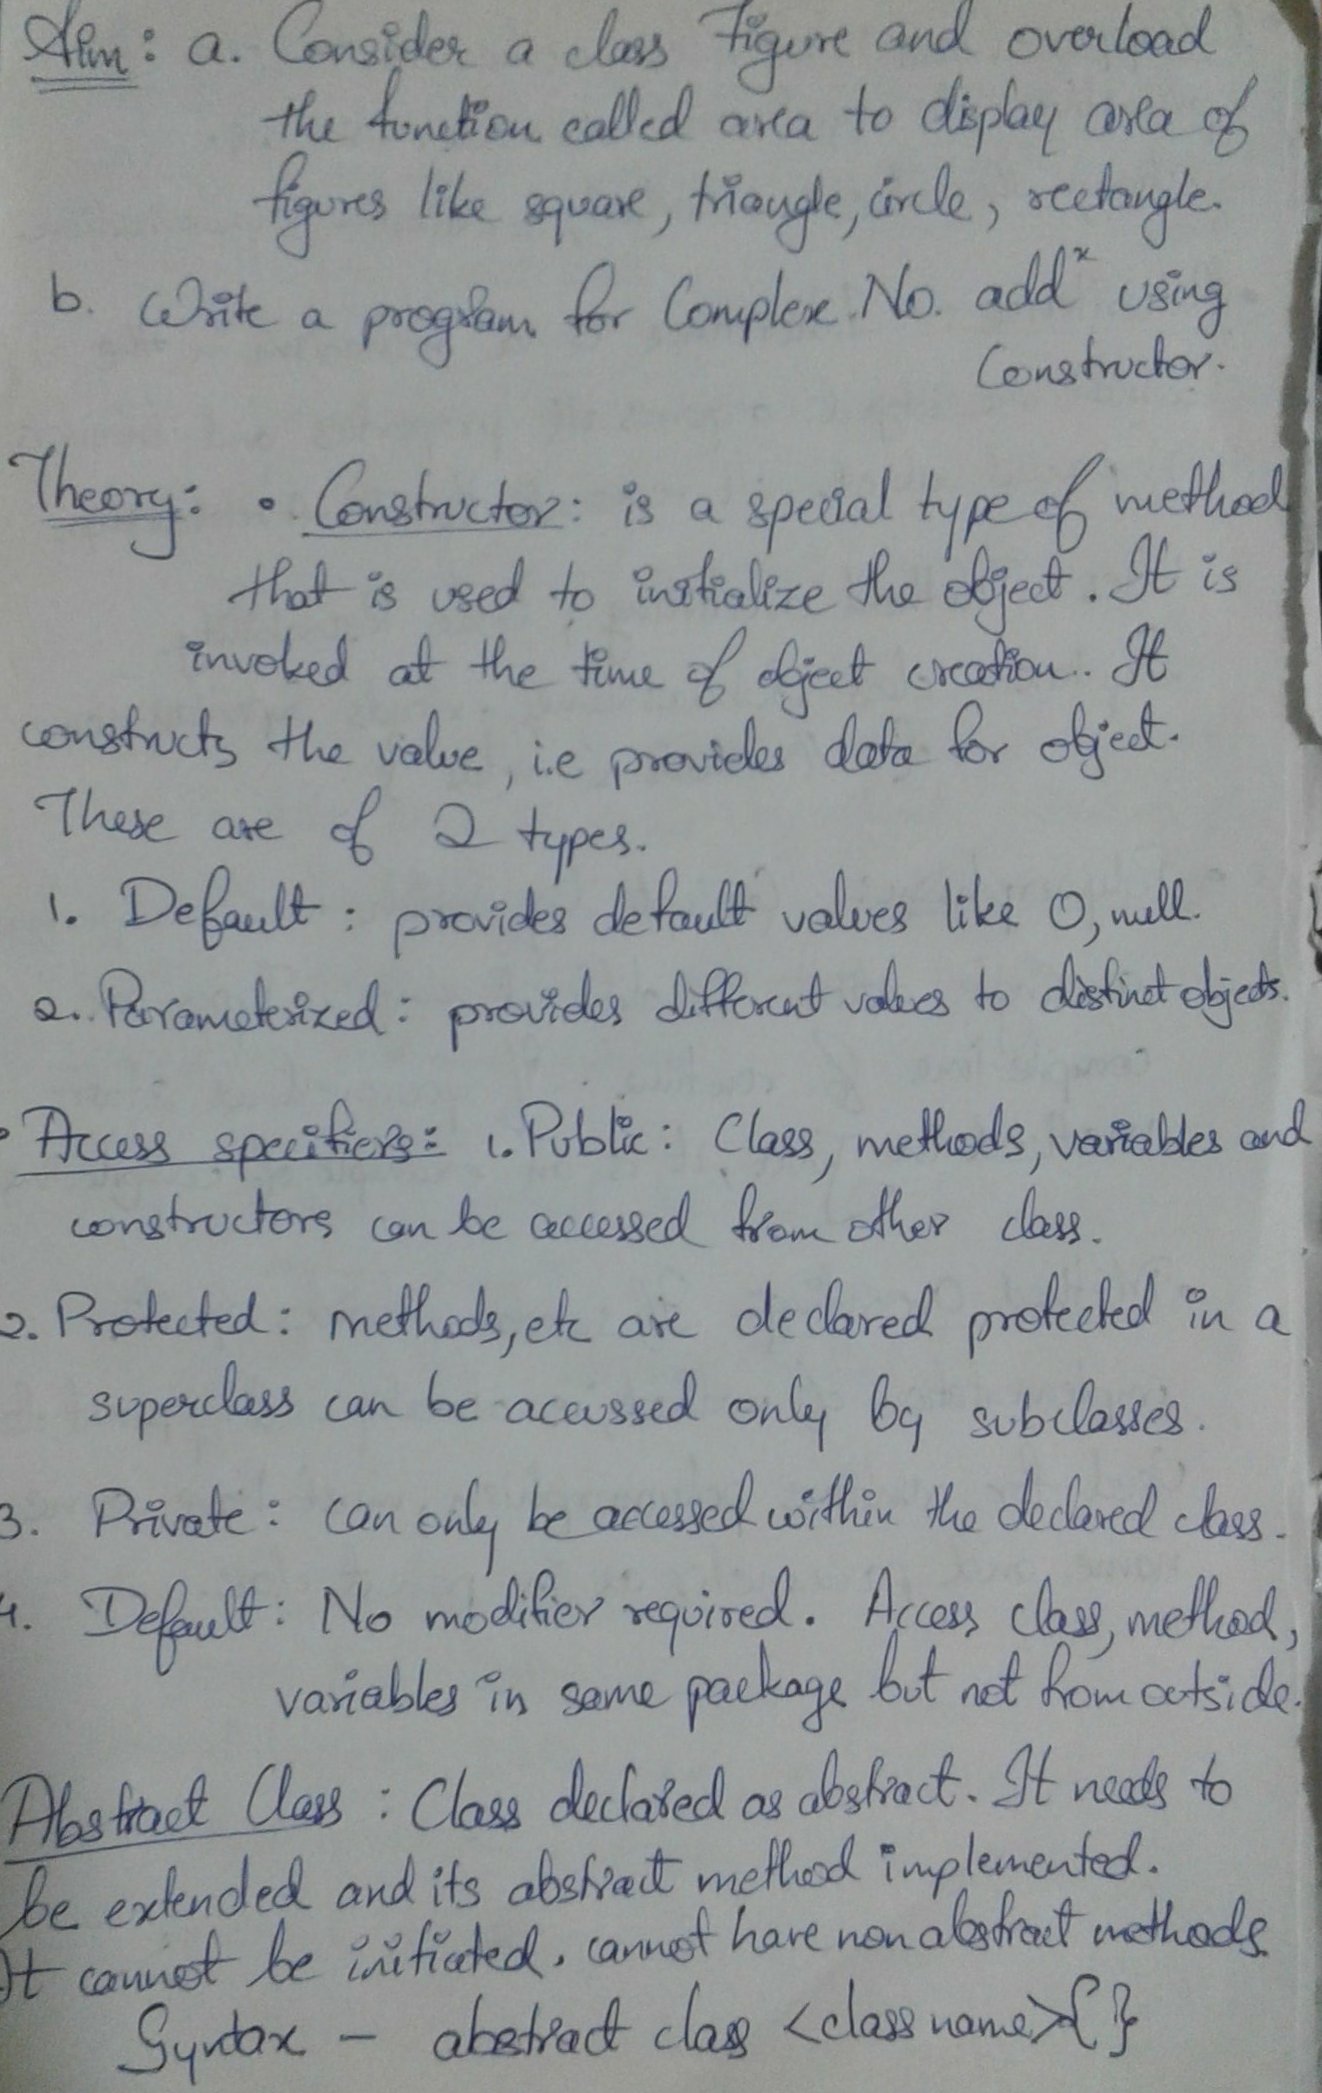 Aim: a. Consider a class Figure and overload
the function called area to display area of
figures like square, triangle, circle, rectangle.
b. Write a program for Complex No. addˣ using
Constructor.
Theory: • Constructor: is a special type of method
that is used to initialize the object. It is
invoked at the time of object creation. It
constructs the value, i.e provides data for object.
These are of 2 types.
1. Default: provides default values like 0, null.
2. Parameterized: provides different values to distinct objects.
• Access specifiers: 1. Public: Class, methods, variables and
constructors can be accessed from other class.
2. Protected: methods, etc are declared protected in a
superclass can be accussed only by subclasses.
3. Private: can only be accessed within the declared class.
4. Default: No modifier required. Access class, method,
variables in same package but not from outside.
Abstract Class: Class declared as abstract. It needs to
be extended and its abstract method implemented.
It cannot be initiated. cannot have non abstract methods
Syntax - abstract class <class name>{}